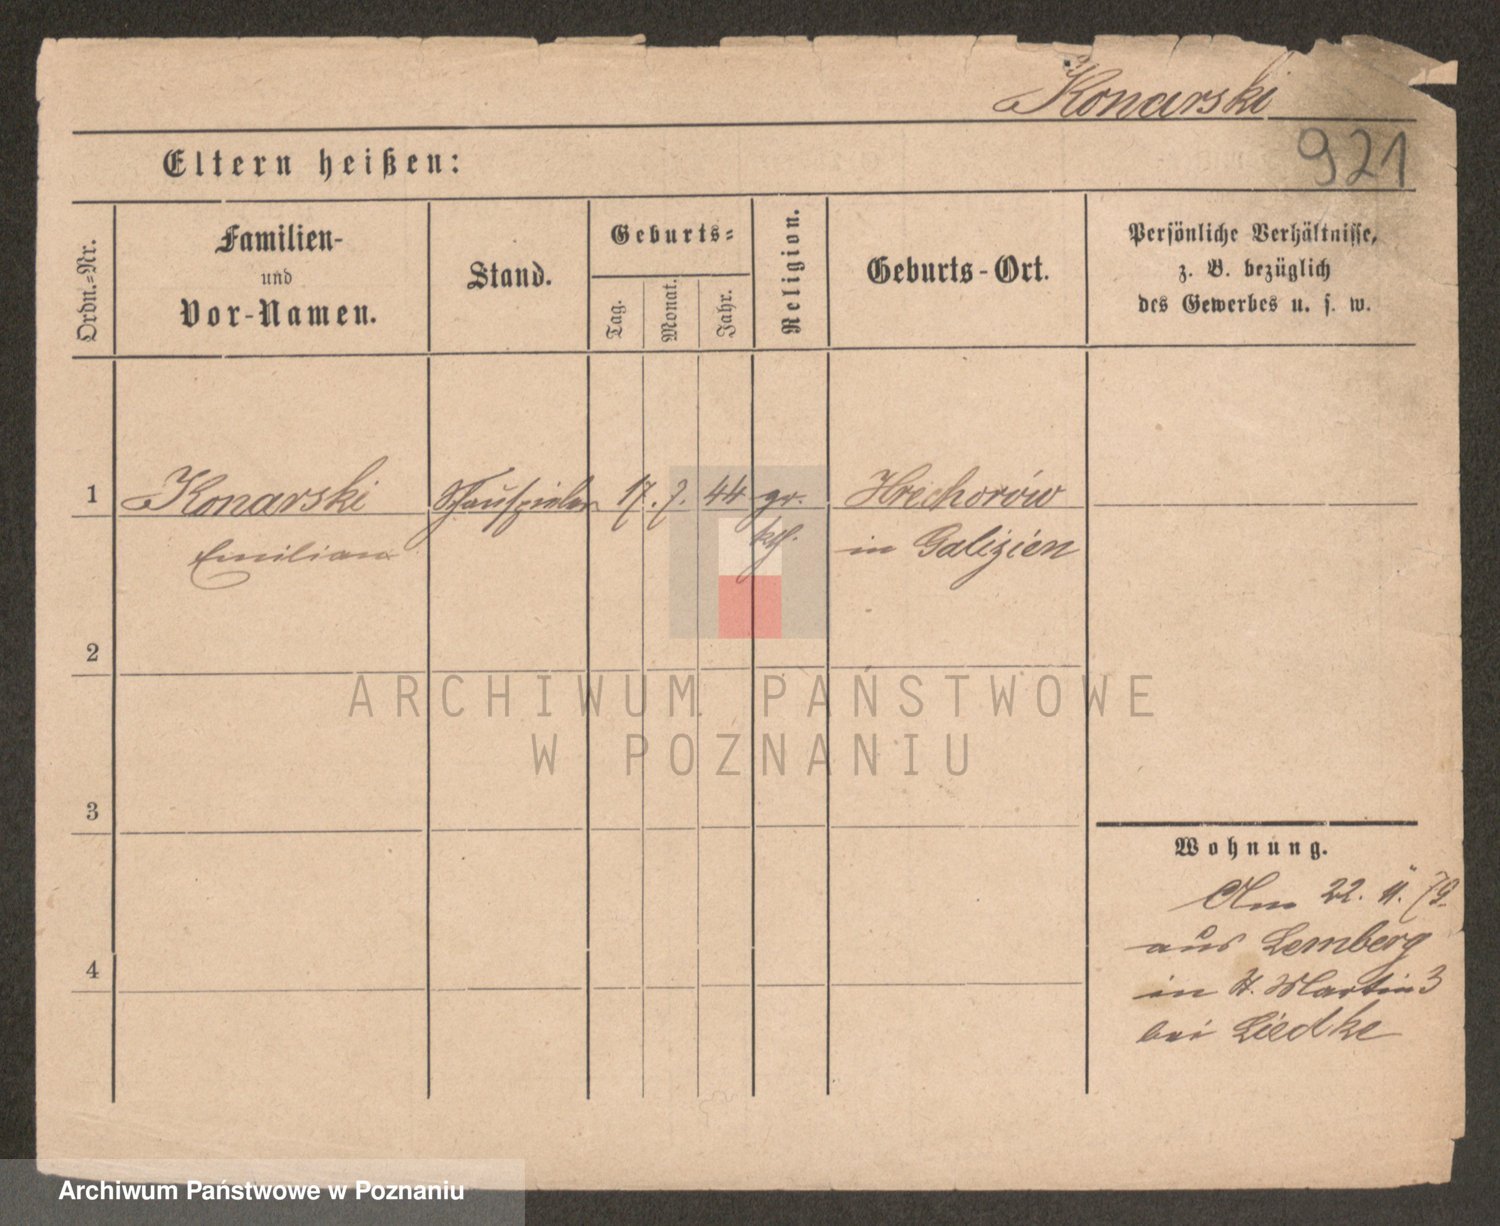 Konarski
921
Eltern heißen:
Ordn.-Nr.
Familien-
und
Vor-Namen.
Stand.
Geburts-
Tag.
Monat.
Jahr.
Religion.
Geburts-Ort.
Persönliche Verhältnisse,
z. B. bezüglich
des Gewerbes u. s. w.
1 Konarski Schauspieler 17. 7. 44 gr. Hrechorów
Emilian kth. in Galizien
2
3
4
Wohnung.
Am 22. 11. 79.
aus Lemberg
in St. Martin 3
bei Liedke
ARCHIWUM PAŃSTWOWE
W POZNANIU
Archiwum Państwowe w Poznaniu